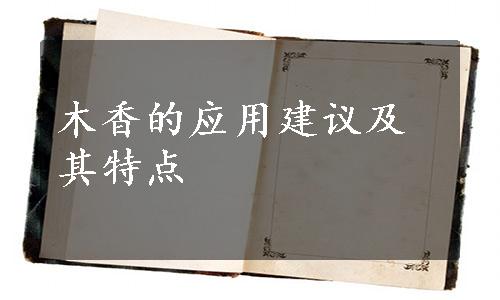 木香的应用建议及
其特点